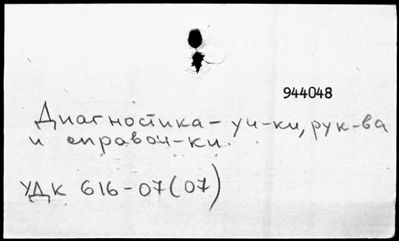 944048
Диагностика - уч-ки, рук-ва
и справоч-ки.
УДК 616-07(07)